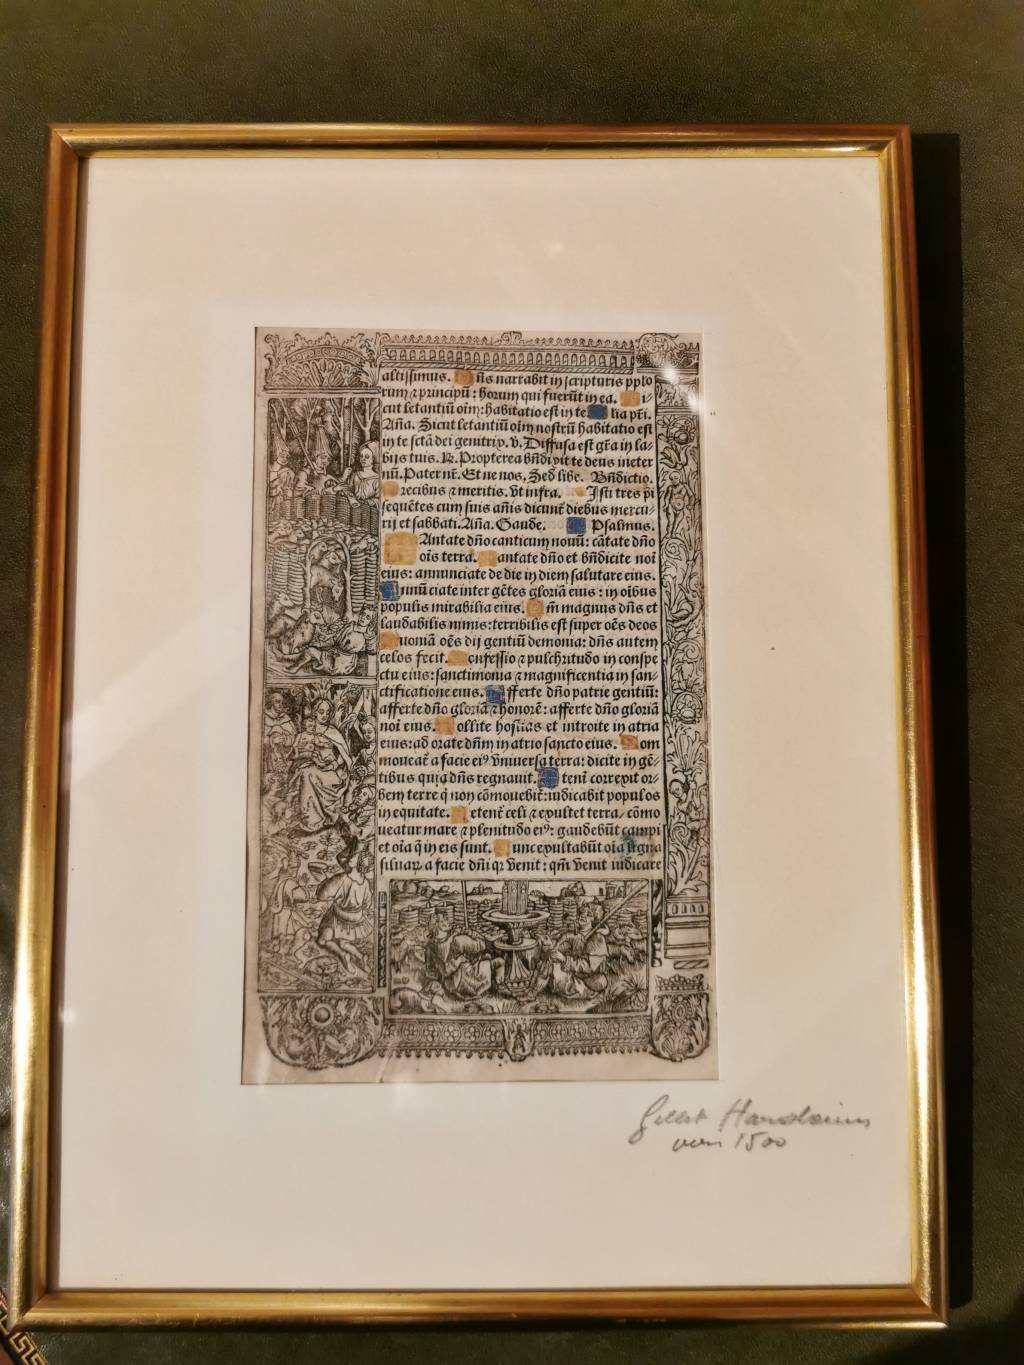 altissimus. Dñs narrabit in scripturis pplo
rum ⁊ principũ: horum qui fuerũt in ea. Si-
cut letantiũ oim̃: habitatio est in te. Glia pr̃i.
Aña. Sicut letantiũ oim̃ nostrũ habitatio est
in te sctã dei genitrix. v. Diffusa est gr̃a in la-
bijs tuis. R. Propterea bñdixit te deus in eter
nũ. Pater nr̃. Et ne nos. Sed libe. Bñdictio.
Precibus ⁊ meritis. Vt infra. Isti tres p̃i
sequẽtes cum suis añis dicunt̃ diebus mercu-
rij et sabbati. Aña. Gaude. Psalmus.
CAntate dño canticum nouũ: cãtate dño
oĩs terra. Cantate dño et bñdicite noĩ
eius: annunciate de die in diem salutare eius.
Annũciate inter gẽtes gloriã eius: in oĩbus
populis mirabilia eius. Qm̃ magnus dñs et
laudabilis nimis: terribilis est super oẽs deos
Quoniã oẽs dij gentiũ demonia: dñs autem
celos fecit. Confessio ⁊ pulchritudo in conspe
ctu eius: sanctimonia ⁊ magnificentia in san-
ctificatione eius. Afferte dño patrie gentiũ:
afferte dño gloriã ⁊ honorẽ: afferte dño gloriã
noĩ eius. Tollite hostias et introite in atria
eius: adorate dñm in atrio sancto eius. Com
moueat̃ a facie eiꝰ vniuersa terra: dicite in gẽ-
tibus quia dñs regnauit. Etenĩ correxit or-
bem terre q̃ non cõmouebit̃: iudicabit populos
in equitate. Letent̃ celi ⁊ exultet terra, cõmo
ueatur mare ⁊ plenitudo eiꝰ: gaudebũt campi
et oĩa q̃ in eis sunt. Tunc exultabũt oĩa ligna
siluaꝝ a facie dñi qꝛ venit: qm̃ venit iudicare
1500